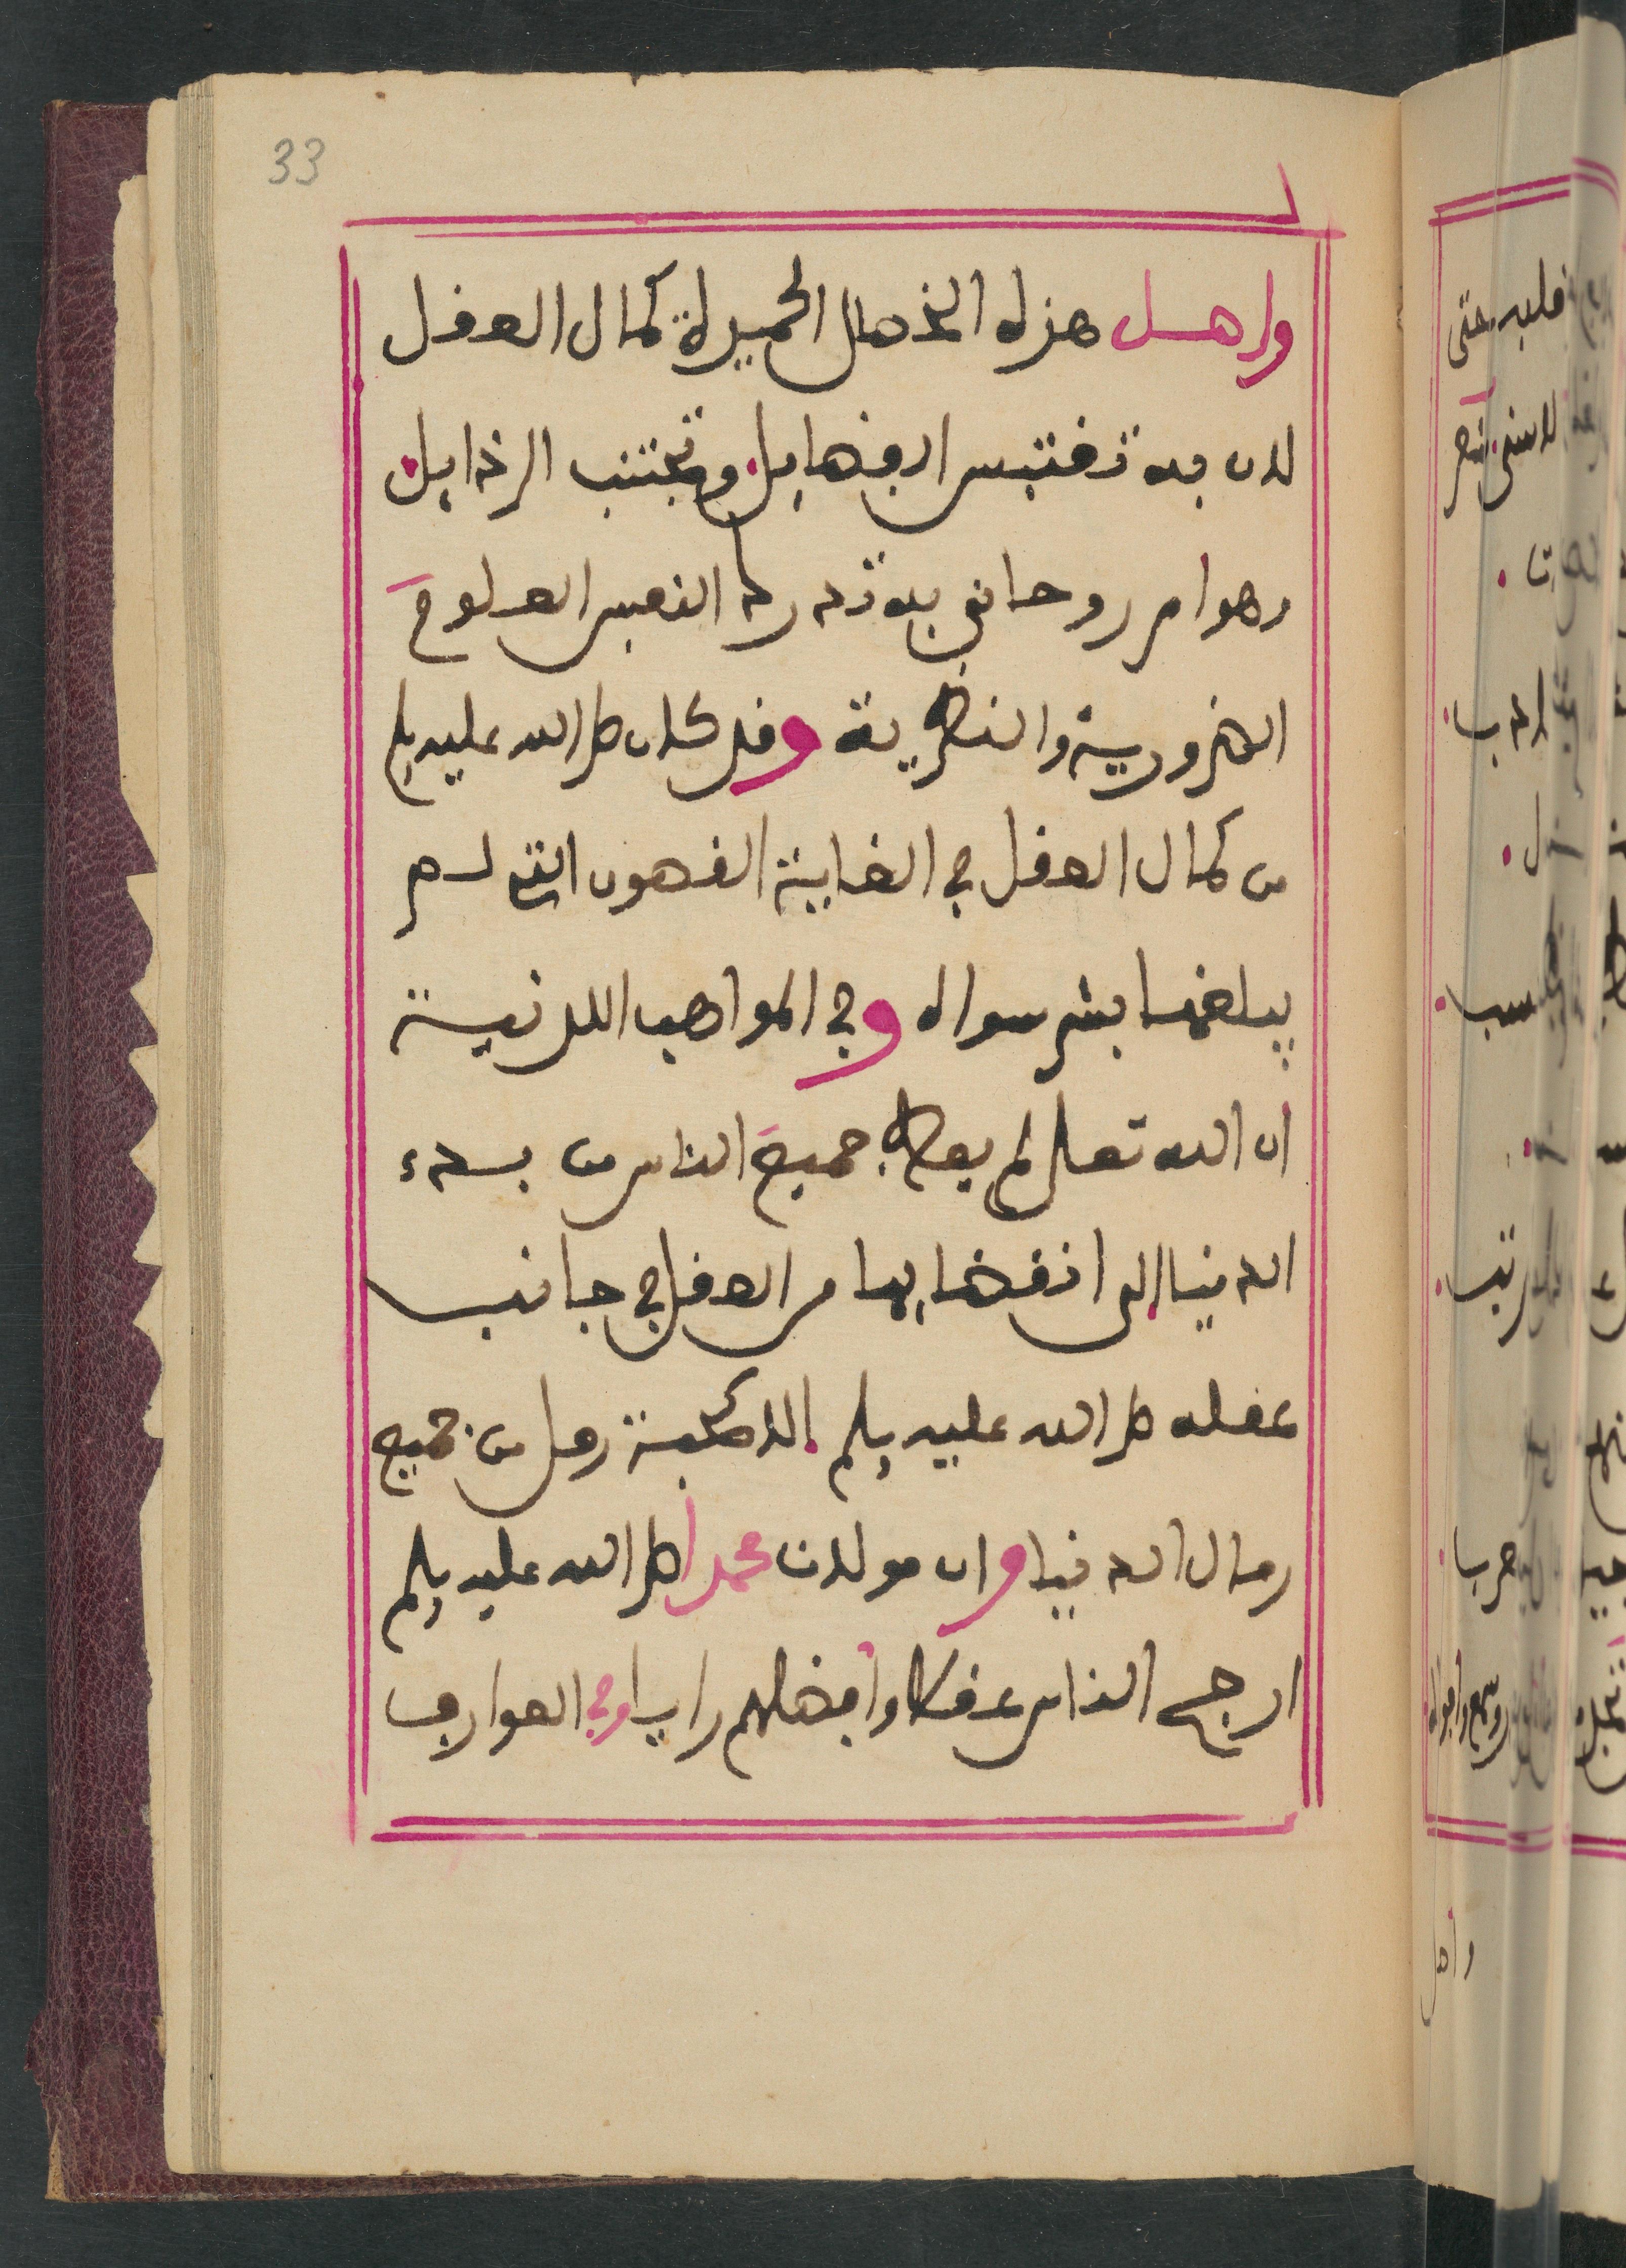 33
واصل هذه الخصال الحميدة كمال العقل
لان به تقتبس الفضايل وتجتنب الرذايل
وهو امر روحاني به تدرك النفس العلوم
الضرورية والنظرية وقد كان صلى الله عليه وسلم
من كمال العقل في الغاية القصوى التي لم
يبلغها بشر سواه وفي المواهب اللدنية
ان الله تعلى لم يعط جميع الناس من بدء
الدنيا إلى انقضايها من العقل في جانب
عقله صلى الله عليه وسلم الا كحبة رمل من جميع
رمال الدنيا وان مولانا محمدا صلى الله عليه وسلم
ارجح الناس عقلا وأفضلهم رايا وفي العوارف
قلبه حتى
واصل